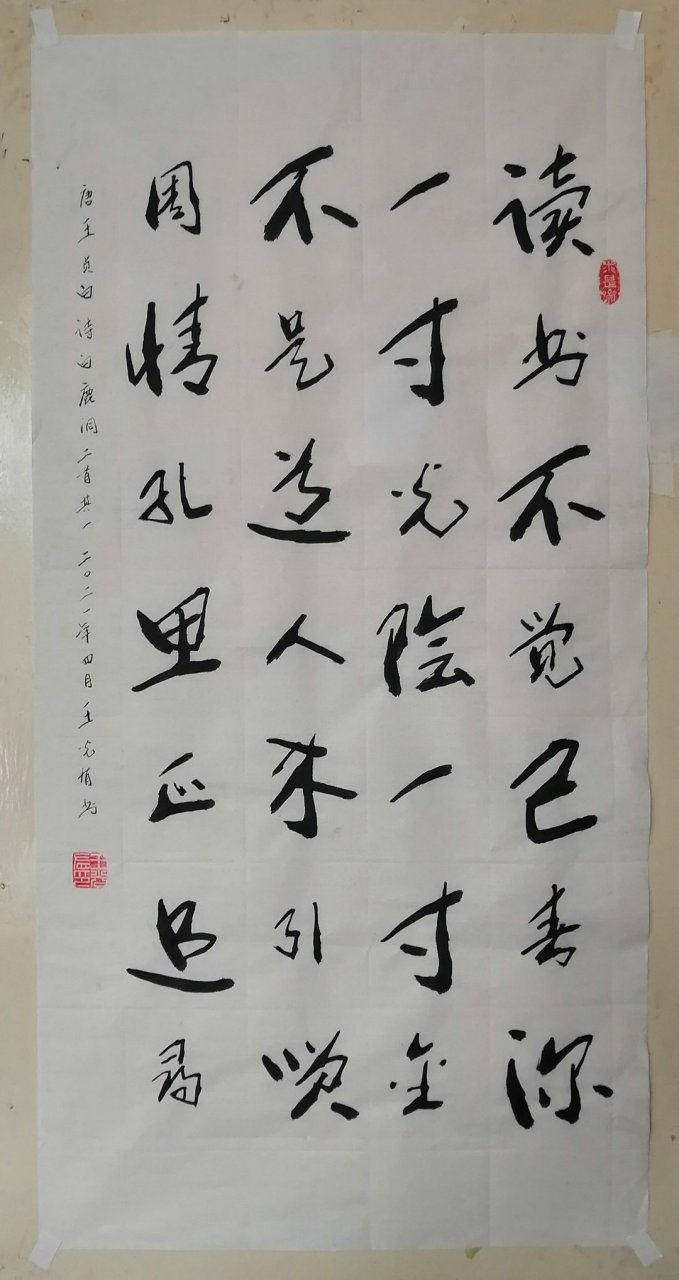 读书不觉已春深
一寸光阴一寸金
不是道人来引笑
周情孔思正追寻
唐王贞白诗白鹿洞二首其一 二〇二一年四月王光书